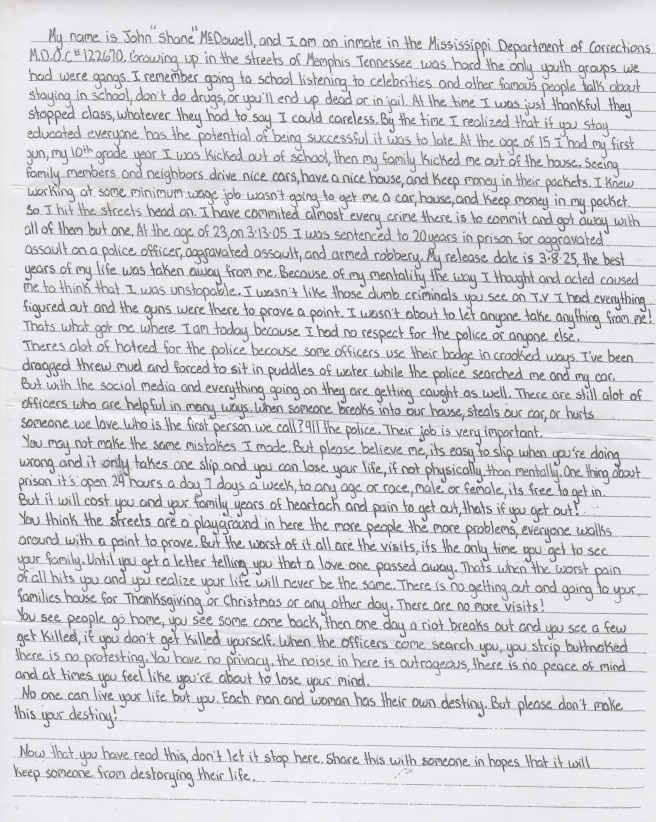 My name is John "Shane" McDowell, and I am an inmate in the Mississippi Department of Corrections
M.D.O.C # 122670. Growing up in the streets of Memphis Tennessee was hard the only youth groups we
had were gangs. I remember going to school listening to celebrities and other famous people talk about
staying in school, don't do drugs, or you'll end up dead or in jail. At the time I was just thankful they
stopped class, whatever they had to say I could careless. By the time I realized that if you stay
educated everyone has the potential of being successful it was to late. At the age of 15 I had my first
gun, my 10th grade year I was kicked out of school, then my family kicked me out of the house. Seeing
family members and neighbors drive nice cars, have a nice house, and keep money in their pockets. I knew
working at some minimum wage job wasn't going to get me a car, house, and keep money in my pocket.
So I hit the streets head on. I have commited almost every crime there is to commit and got away with
all of them but one. At the age of 23, on 3-13-05 I was sentenced to 20 years in prison for aggravated
assault on a police officer, aggravated assault, and armed robbery. My release date is 3-8-25, the best
years of my life was taken away from me. Because of my mentality the way I thought and acted caused
me to think that I was unstopable. I wasn't like those dumb criminals you see on T.V I had everything
figured out and the guns were there to prove a point. I wasn't about to let anyone take anything from me!
Thats what got me where I am today because I had no respect for the police or anyone else.
Theres alot of hatred for the police because some officers use their badge in crooked ways. I've been
dragged threw mud and forced to sit in puddles of water while the police searched me and my car.
But with the social media and everything going on they are getting caught as well. There are still alot of
officers who are helpful in many ways. When someone breaks into our house, steals our car, or hurts
someone we love. Who is the first person we call? 911 the police. Their job is very important.
You may not make the same mistakes I made. But please believe me, its easy to slip when you're doing
wrong, and it only takes one slip and you can lose your life, if not physically, than mentally. One thing about
prison it's open 24 hours a day 7 days a week, to any age or race, male or female, its free to get in.
But it will cost you and your family years of heartach and pain to get out, thats if you get out!
You think the streets are a playground in here the more people the more problems, everyone walks
around with a point to prove. But the worst of it all are the visits, its the only time you get to see
your family. Until you get a letter telling you that a love one passed away. Thats when the worst pain
of all hits you and you realize your life will never be the same. There is no getting out and going to your
families house for Thanksgiving or Christmas or any other day. There are no more visits!
You see people go home, you see some come back, then one day a riot breaks out and you see a few
get killed, if you don't get killed yourself. When the officers come search you, you strip buttnaked
there is no protesting. You have no privacy, the noise in here is outrageous, there is no peace of mind
and at times you feel like you're about to lose your mind.
No one can live your life but you. Each man and woman has their own destiny. But please don't make
this your destiny!
Now that you have read this, don't let it stop here. Share this with someone in hopes that it will
keep someone from destorying their life.